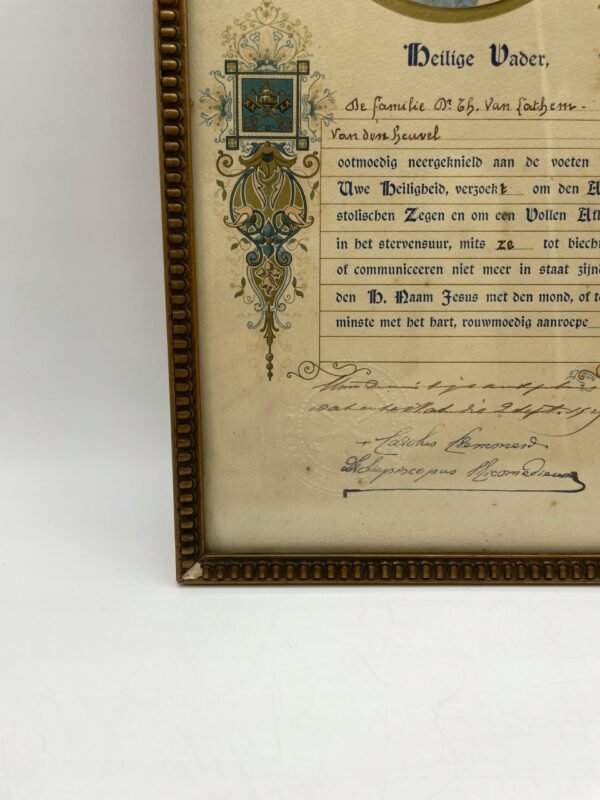 Heilige Vader,
De familie Dr Th. Van Lathem -
Van den heuvel
ootmoedig neergeknield aan de voeten
Uwe Heiligheid, verzoekt om den A
stolischen Zegen en om een Vollen Afl
in het stervensuur, mits ze tot biech
of communiceeren niet meer in staat zijnd
den H. Naam Jesus met den mond, of te
minste met het hart, rouwmoedig aanroepe
die 2 Sept.
+ Carolus
Archiepiscopus Nicomediens